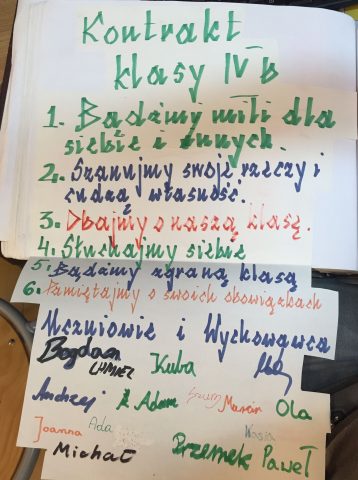 Kontrakt
klasy IV b
1. Bądźmy mili dla
siebie i innych.
2. Szanujmy swoje rzeczy i
cudzą własność.
3. Dbajmy o naszą klasę.
4. Słuchajmy siebie
5. Bądźmy zgraną klasą
6. Pamiętajmy o swoich obowiązkach
Uczniowie i Wychowawca
Bogdan Kuba
Andrzej Adam Marcin Ola
Joanna Ada Wasia
Michał Przemek Paweł